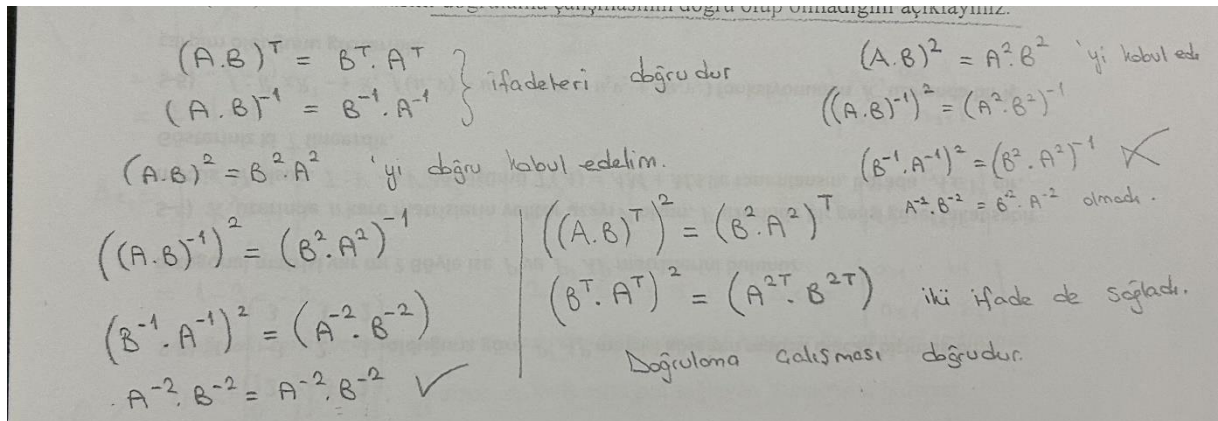 doğru olup olmadığını açıklayınız.
(A.B)ᵀ = Bᵀ.Aᵀ
(A.B)⁻¹ = B⁻¹.A⁻¹
} ifadeleri doğrudur
(A.B)² = B²A² 'yi doğru kabul edelim.
((A.B)⁻¹)² = (B².A²)⁻¹
(B⁻¹.A⁻¹)² = (A⁻².B⁻²)
A⁻².B⁻² = A⁻².B⁻² ✓
((A.B)ᵀ)² = (B².A²)ᵀ
(Bᵀ.Aᵀ)² = (A²ᵀ.B²ᵀ) iki ifade de sağladı.
Doğrulama çalışması doğrudur.
(A.B)² = A².B² 'yi kabul ede
((A.B)⁻¹)² = (A².B²)⁻¹
(B⁻¹.A⁻¹)² = (B².A²)⁻¹ ✗
A⁻².B⁻² = B⁻².A⁻² olmadı.